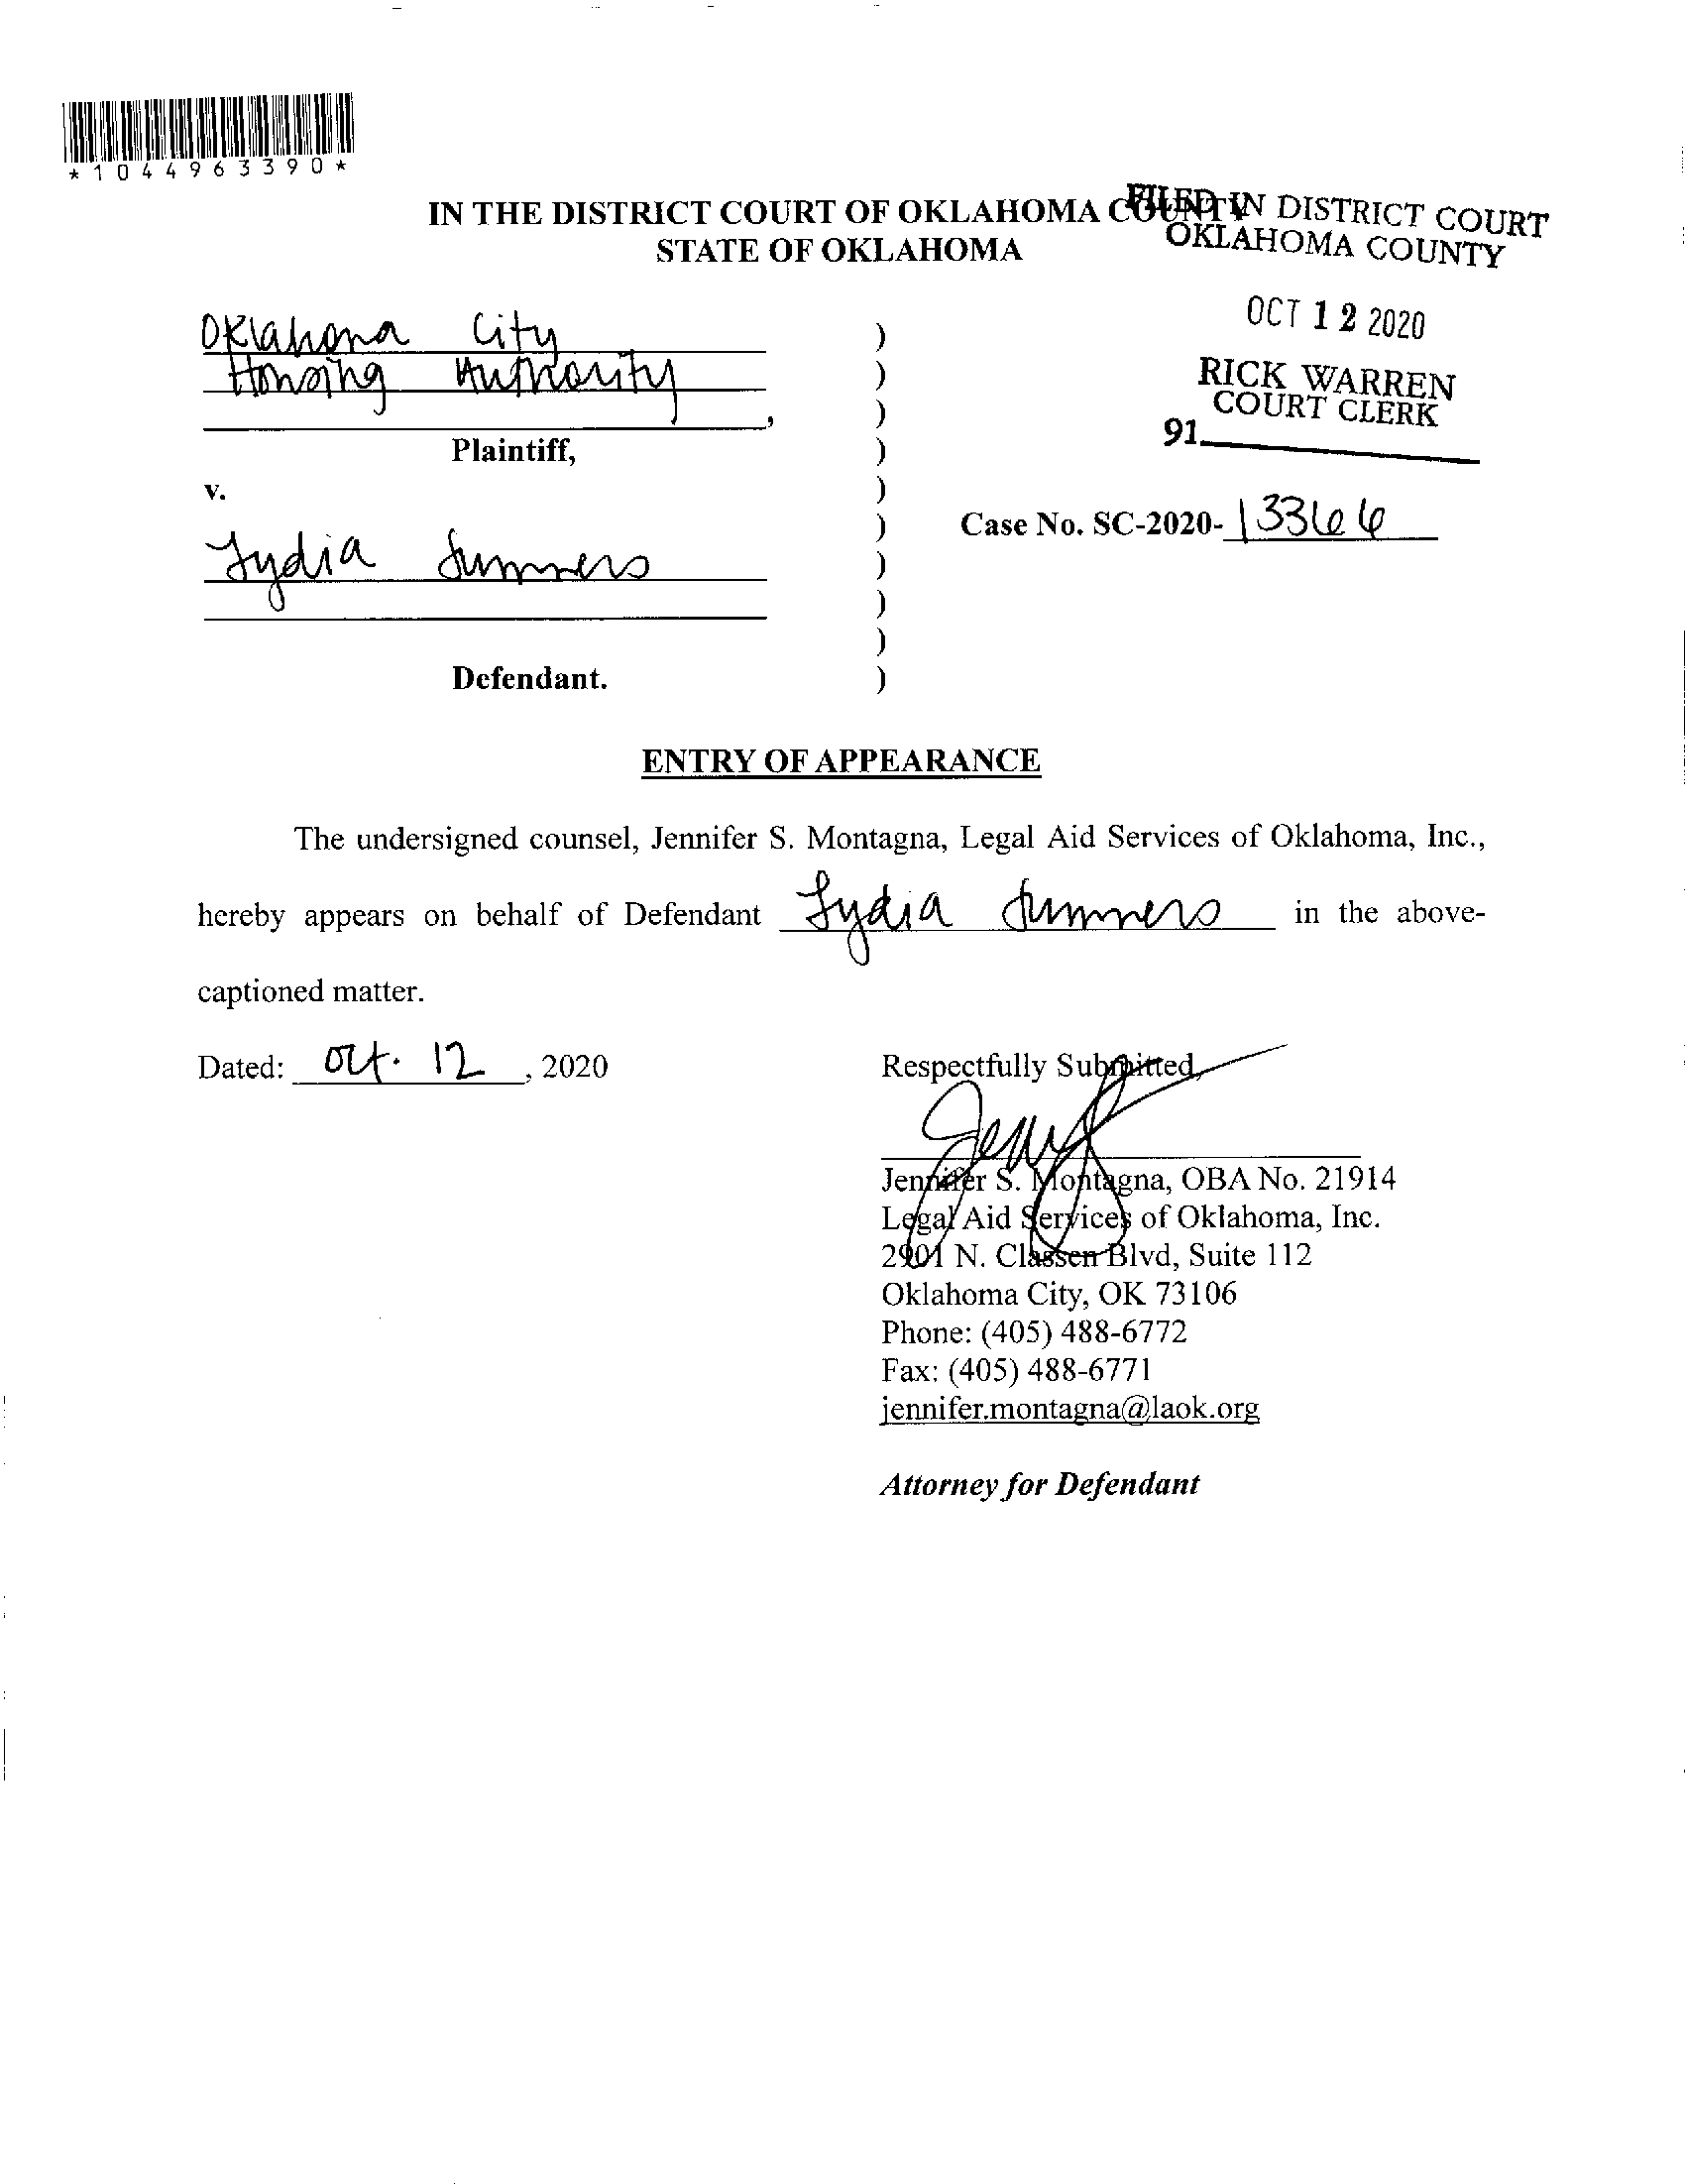 *1044963390*
IN THE DISTRICT COURT OF OKLAHOMA COUNTY
STATE OF OKLAHOMA
FILED IN DISTRICT COURT
OKLAHOMA COUNTY
OCT 12 2020
RICK WARREN
COURT CLERK
91
Oklahoma City )
Housing Authority )
, )
Plaintiff, )
v. )
Case No. SC-2020-13366 )
Lydia Summers )
)
)
Defendant. )
ENTRY OF APPEARANCE
The undersigned counsel, Jennifer S. Montagna, Legal Aid Services of Oklahoma, Inc.,
hereby appears on behalf of Defendant Lydia Summers in the above-
captioned matter.
Dated: Oct. 12, 2020
Respectfully Submitted,
Jennifer S. Montagna, OBA No. 21914
Legal Aid Services of Oklahoma, Inc.
2901 N. Classen Blvd, Suite 112
Oklahoma City, OK 73106
Phone: (405) 488-6772
Fax: (405) 488-6771
jennifer.montagna@laok.org
Attorney for Defendant